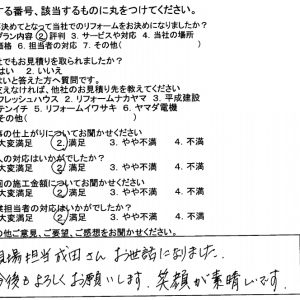 する番号、該当するものに丸をつけてください。
決めてとなって当社でのリフォームをお決めになりましたか?
プラン内容 ②評判 3. サービスや対応 4. 当社の場所
価格 6. 担当者の対応 7. その他(
社でもお見積りを取られましたか?
はい 2. いいえ
はいと答えた方へ質問です。
支えなければ、他社のお見積り先を教えてください
フレッシュハウス 2. リフォームナカヤマ 3. 平成建設
テンイチ 5. リフォームイワサキ 6. ヤマダ電機
その他(
事の仕上がりについてお聞かせください
大変満足 ②満足 3. やや不満 4. 不満
人の対応はいかがでしたか?
大変満足 ②満足 3. やや不満 4. 不満
回の施工金額についてお聞かせください
大変満足 ②満足 3. やや不満 4. 不満
業担当者の対応はいかがでしたか
大変満足 ②満足 3. やや不満 4. 不満
の他ご意見、ご要望、ご感想をお聞かせください。
現場担当成田さん お世話になりました.
今後もよろしくお願いします. 笑顔が素晴しいです.